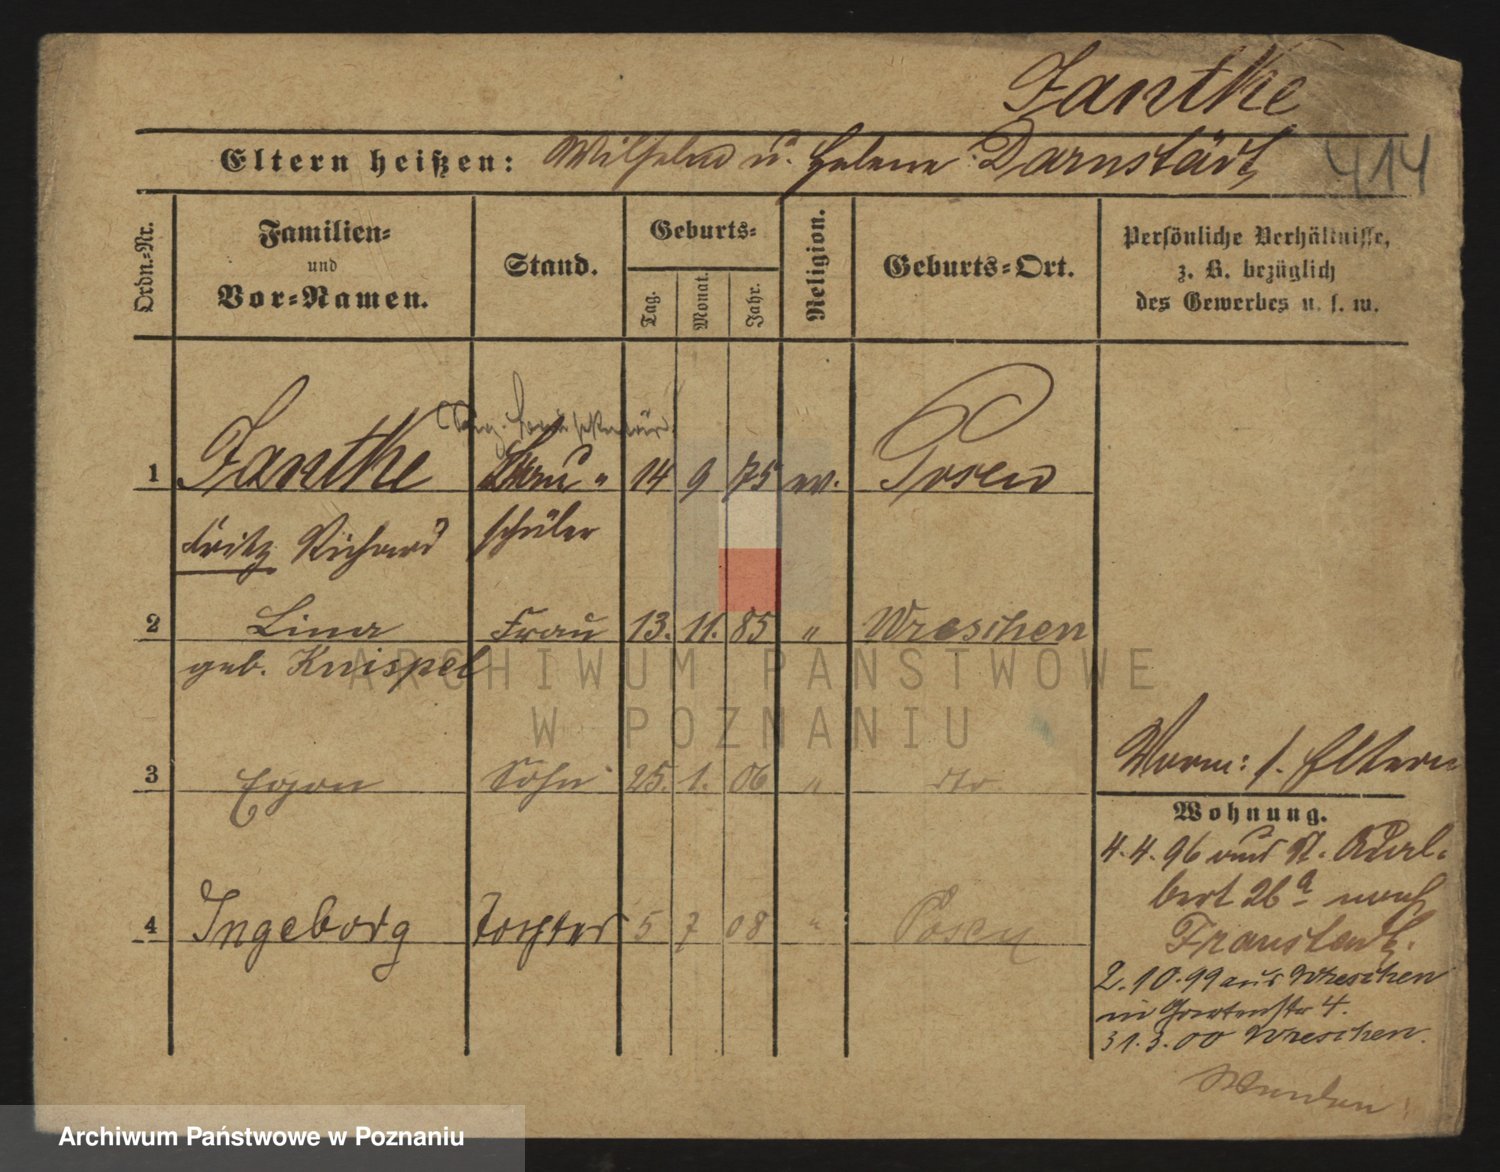 Jantke
Eltern heißen: Wilhelm u. Helene Darnstädt
414
Ordn.-Nr.
Familien-
und
Vor-Namen.
Stand.
Geburts-
Tag.
Monat.
Jahr.
Religion.
Geburts-Ort.
Persönliche Verhältnisse,
z. B. bezüglich
des Gewerbes u. s. w.
1 Jantke Bau- 14 9 75 ev. Posen
Fritz Richard schüler
2 Lina Frau 13. 11. 85 " Wreschen
geb. Knispel
3 Egon Sohn 25. 1. 06 " dto
4 Ingeborg Tochter 5 7 08 " Posen
Vorm: s. Eltern
Wohnung.
4.4.96 aus St. Adal-
bert 26a nach
Fraustadt.
2.10.99 aus Wreschen
in Gartenstr 4.
31.3.00 Wreschen.
Wenden
ARCHIWUM PAŃSTWOWE
W POZNANIU
Archiwum Państwowe w Poznaniu